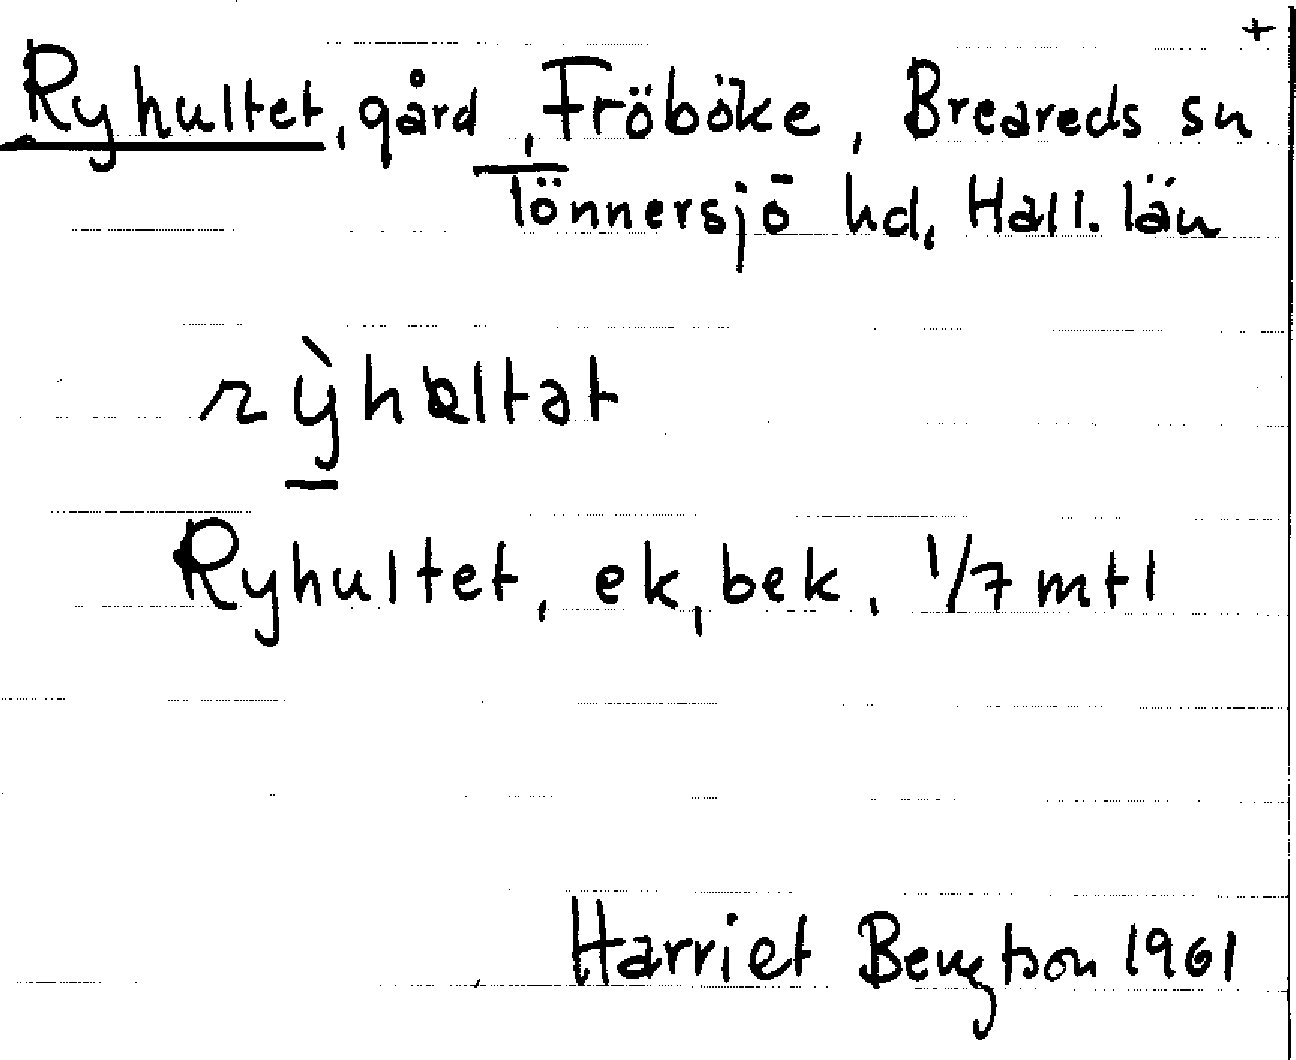 +
Ryhultet, gård, Fröböke, Breareds sn
Tönnersjö hd, Hall. län
Ryhultet, ek, bek, 1/7 mtl
Harriet Bengtson 1961